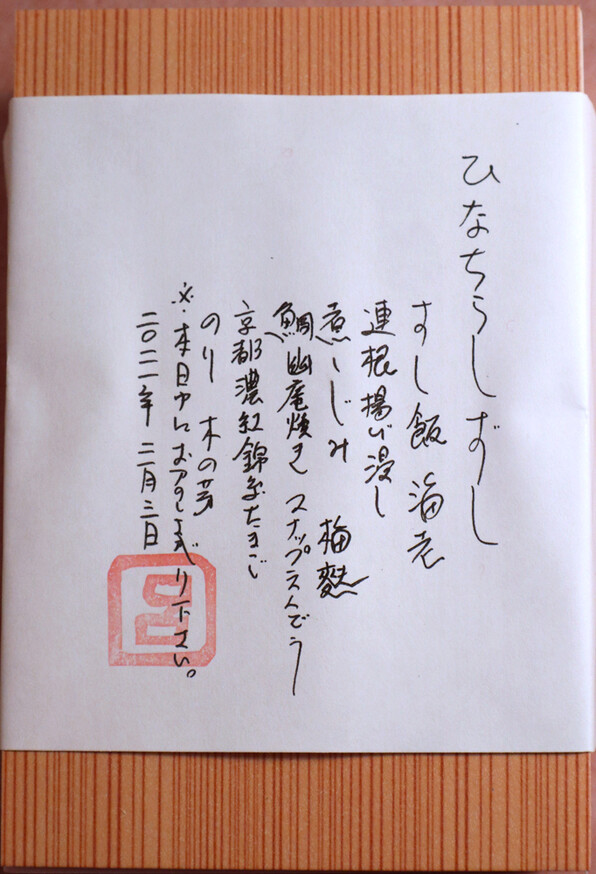 ひなちらしずし
すし飯 海老
連根揚げ浸し
煮しじみ 梅麩
鯛幽庵焼き スナップえんどう
京都濃紅錦糸たまご
のり 木の芽
※本日中にお召し上がり下さい。
二〇二一年 三月三日